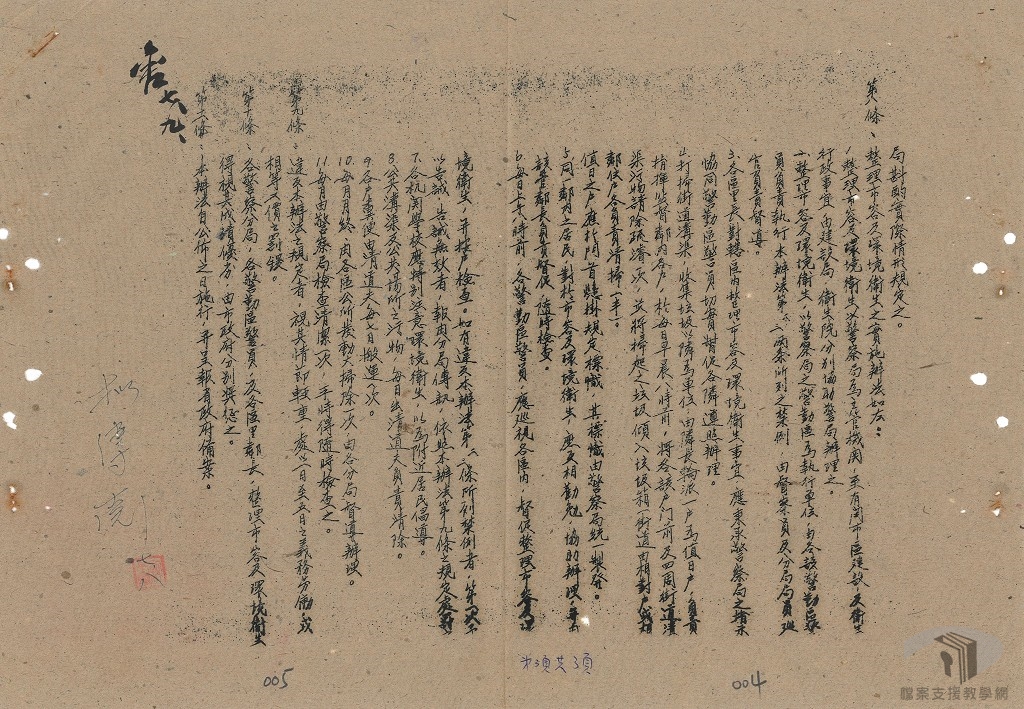 局斟酌實際情形規定之。
第八條、整理市容及環境衛生之實施辦法如左：
1.整理市容及環境衛生以警察局為主管機関，至有関市區建設及衛生
行政事宜，由建設局，衛生院分別協助警局辦理之。
2.整理市容及環境衛生，以警察局之警勤區為執行單位，由各該警勤區警
員負責執行本辦法第二、三兩條所列之禁例，由督察員及分局局員巡
官負責督導。
3.各區里長對轄區内整理市容及環境衛生事宜，應秉承警察局之指示
協同警勤區警員切實督促各隣遵照辦理。
4.打掃街道溝渠，收集垃圾以隣為單位，由隣長輪派一戶為值日戶，負責
指揮監督鄰内各戶，於每日早晨八時前，將各該戶門前及四周街道溝
渠污物清除疏濬一次，並將掃起之垃圾傾入垃圾箱（街道由相對戶或相
鄰住戶各負責清掃一半）。
值日之戶應於門首懸掛規定標幟，其標幟由警察局統一製發。
5.同一鄰内之居民，對於市容及環境衛生，應互相勸勉，協助辦理，並由
該管鄰長負責督促，隨時檢查。
6.每日上午八時前，各警勤區警員，應巡視各區内，督促整理市容及環
境衛生，并按戶檢查。如有違反本辦法第二條所列禁例者，第一次予
以告誡，告誡無效者，報由分局傳訊，依照本辦法第九條之規定處罰
7.各机関學校應特別注意環境衛生，以為附近居民倡導。
8.公共溝渠及公共場所之污物，每日由清道夫負責清除。
9.各戶糞便由清道夫每七日搬運一次。
10.每月月終，由各區公所發動大掃除一次，由各分局督導辦理。
11.每月由警察局檢查清潔一次，平時得隨時檢查之。
第九條：違反本辦法之規定者，視其情節輕重，處以一日至五日之義務勞働或
相等工價之罰鍰。
第十條：各警察分局，各警勤區警員，及各區里鄰長，整理市容及環境衛生
得視其成績優劣，由市政府分別獎懲之。
第十一條：本辦法自公佈之日施行，并呈報省政府備案。
七、九、
本項共3頁
005
004
檔案支援教學網